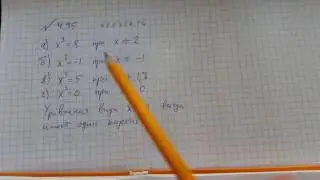 № 495
а) x³ = 8 при x = 2
б) x³ = -1 при x = -1
в) x³ = 5 при
г) x³ = 0 при 0
Уравнения вида всегда
имеют один корень